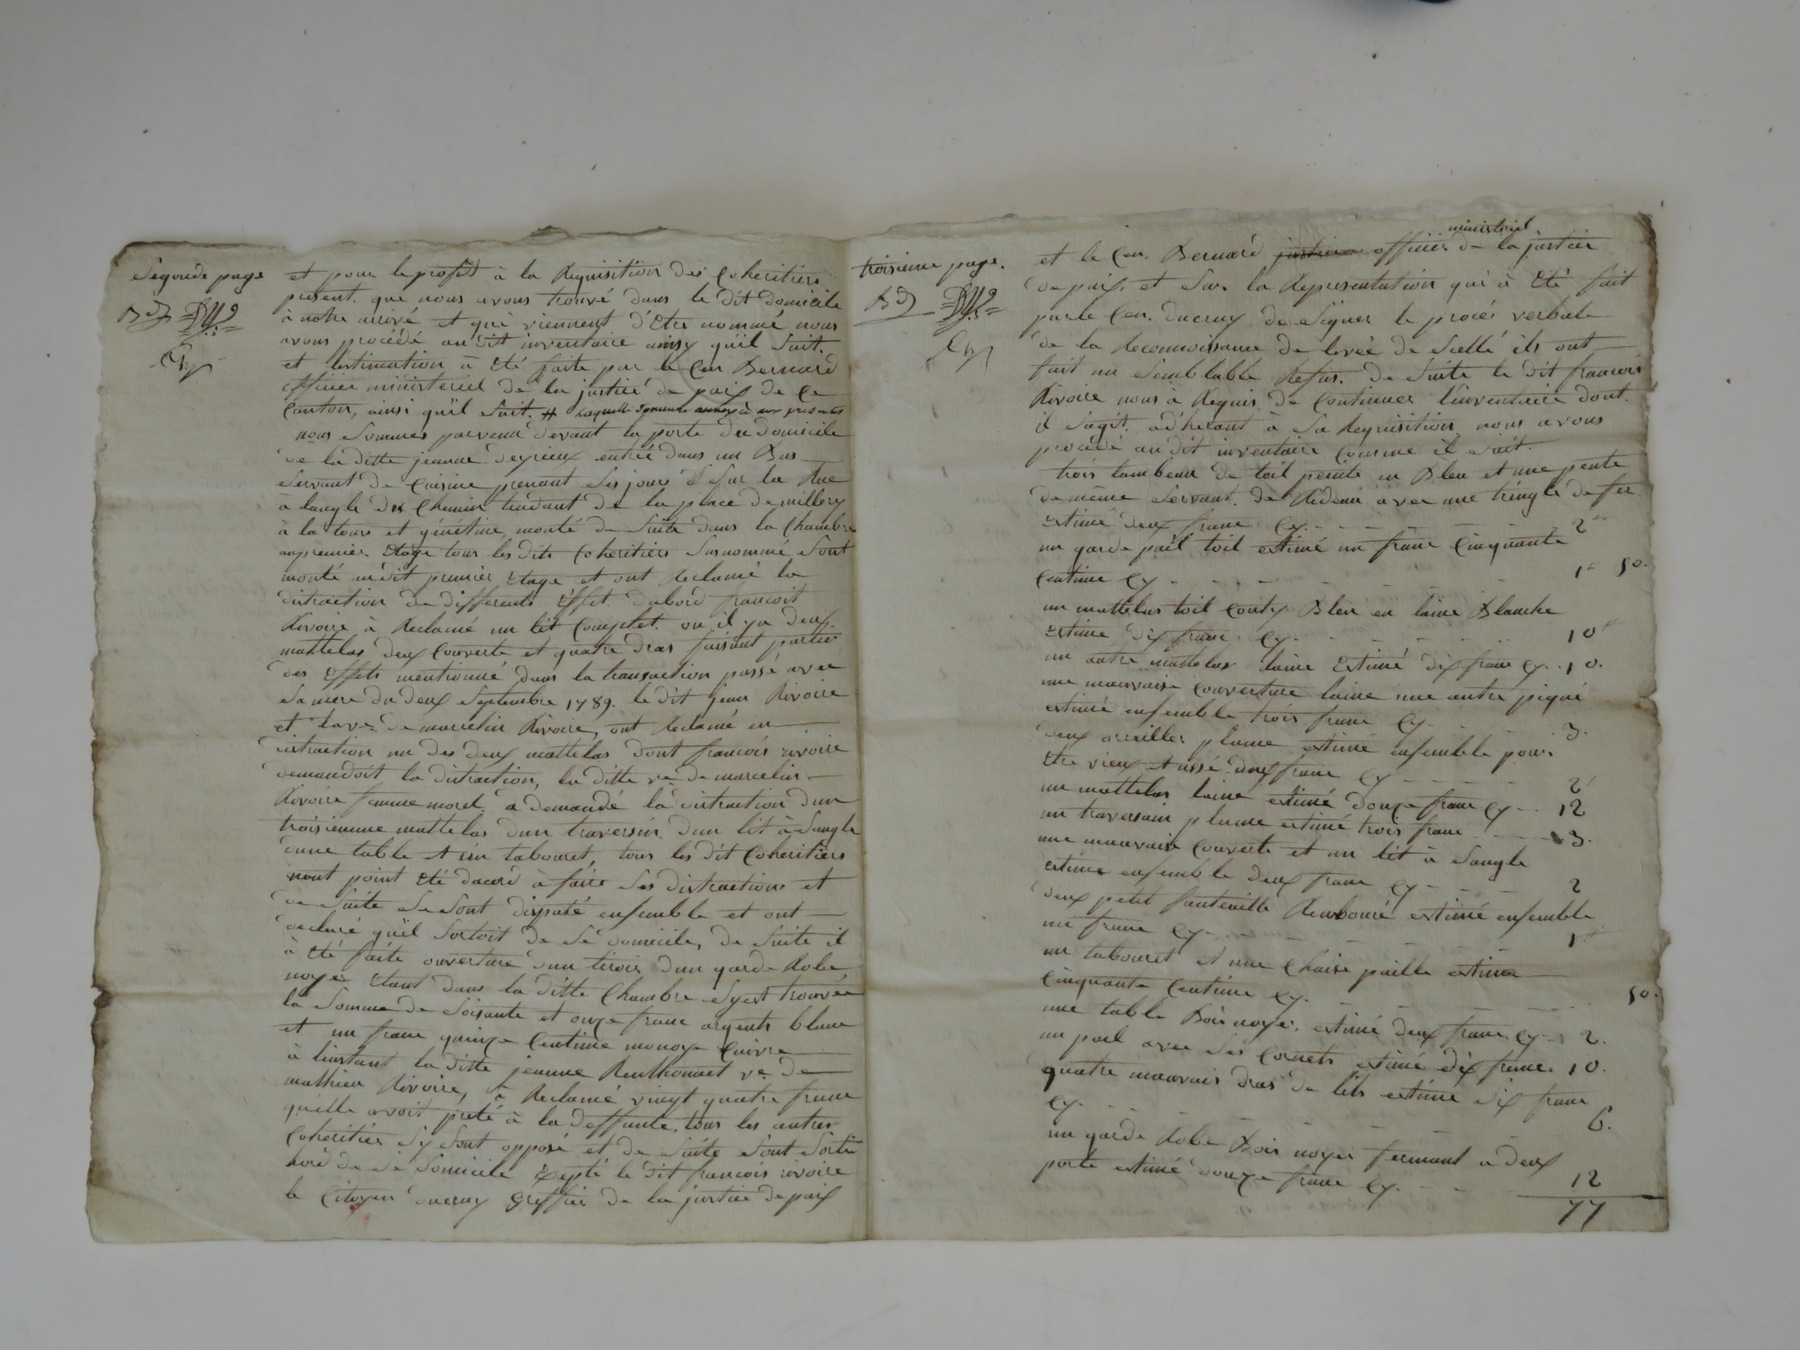 segonde page
et pour le profit à la Requisition des Coheritiers
present. que nous avons trouvé dans le dit domicile
à notre arrivé et qui viennent d'Etre nommé nous
avons procédé audit inventaire ainsy quil suit.
et lestimation à Eté faite par le Cen Bernard
officier ministeriel de la justice de paix de Ce
Canton, ainsi qu'il suit. # laquelle Somme annexée aux presentes
nous sommes parvenu devant la porte du domicile
de la ditte jeanne deyrieux entrée dans un Bas
servant de Cuisine prenant ses jours sur la Rue
à langle du Chemin tendant de la place de millery
à la tours et génétine, monté de suite dans la Chambre
au premier Etage tous les dits Coheritiers susnommé sont
monté audit premier Etage et ont Reclamé la
distraction de differents Effet. dabord francois
Rivoire à Reclamé un lit Complet. ou il ya deux
mattelas deux Couverte et quatre dras faisant partie
des Effets mentionné dans la transaction passé avec
sa mere du deux Septembre 1789. le dit jean Rivoire
et la ve de marcelin Rivoire, ont Reclamé en
distraction un des deux mattelas dont francois rivoire
demandoit la distraction, la ditte ve de marcelin
Rivoire femme morel. a demandé la distraction dun
troisiemme mattelas dun traversin dun lit à Sangle
dune table et un tabouret, tous les dit Coheritiers
nont point Eté dacord à faire Ses distractions et
de suite se sont disputé ensemble et ont
declaré qu'il sortoit de se domicile, de suite il
à Eté faite ouverture dun tiroir dun garde Robe
noyer Etant dans la ditte Chambre syest trouvée
la somme de soisante et onze franc argents blanc
et un franc quinze Centime monoye Cuivre
à linstant la ditte jeanne Renthonnet ve de
mathieu Rivoire, à Reclamé vingt quatre franc
quelle avoit preté à la deffunte. tous les autres
Coheritiers sy sont opposé et de suite sont sortie
hors de se domicile Exepté le dit francois rivoire
le Citoyen ducruy Greffier de la justice de paix
troisieme page.
ministeriel
et le Cen. Bernard justice officier de la justice
de paix, et sur la Representation qui à Eté fait
par le Cen. ducruy de signer le procés verbale
de la Reconnoissance de levée de scellé ils ont
fait un semblable Refus. de suite le dit francois
Rivoire nous à Requis de Continuer l'inventaire dont
il sagit. adherant à sa Requisition nous avons
procédé au dit inventaire Comme il suit.
trois lambeau de toil peinte en Bleu et une pente
de même servant de Rideau avec une tringle de fer
Estimé deux franc Cy. 2
un garde pail toil estimé un franc Cinquante
Centime Cy 1 50.
un mattelas toil Couty Bleu en laine Blanche
Estimé dix franc Cy. 10
un autre mattelas laine Estimé dix franc Cy. 10.
une mauvaise couverture laine une autre piqué
estimé ensemble trois franc Cy 3.
deux oreiller plume estimé ensemble pour
Etre vieux et assé deux franc Cy 2
un mattelas laine estimé douze franc Cy 12
un traversain plume estimé trois franc 3.
une mauvaise Couverte et un lit à Sangle
estimé ensemble deux franc Cy 2
deux petit fauteuille Rembouré estimé ensemble
un franc Cy 1
un tabouret et une Chaise paille estimé
Cinquante Centime Cy. 50.
une table Bois noyer, estimé deux franc Cy 2.
un poel avec ses Cornets estimé dix franc. 10.
quatre mauvais dras de lits estimé six franc
Cy. 6.
un garde Robe Bois noyer fermant à deux
porte estimé douze franc Cy. 12
77